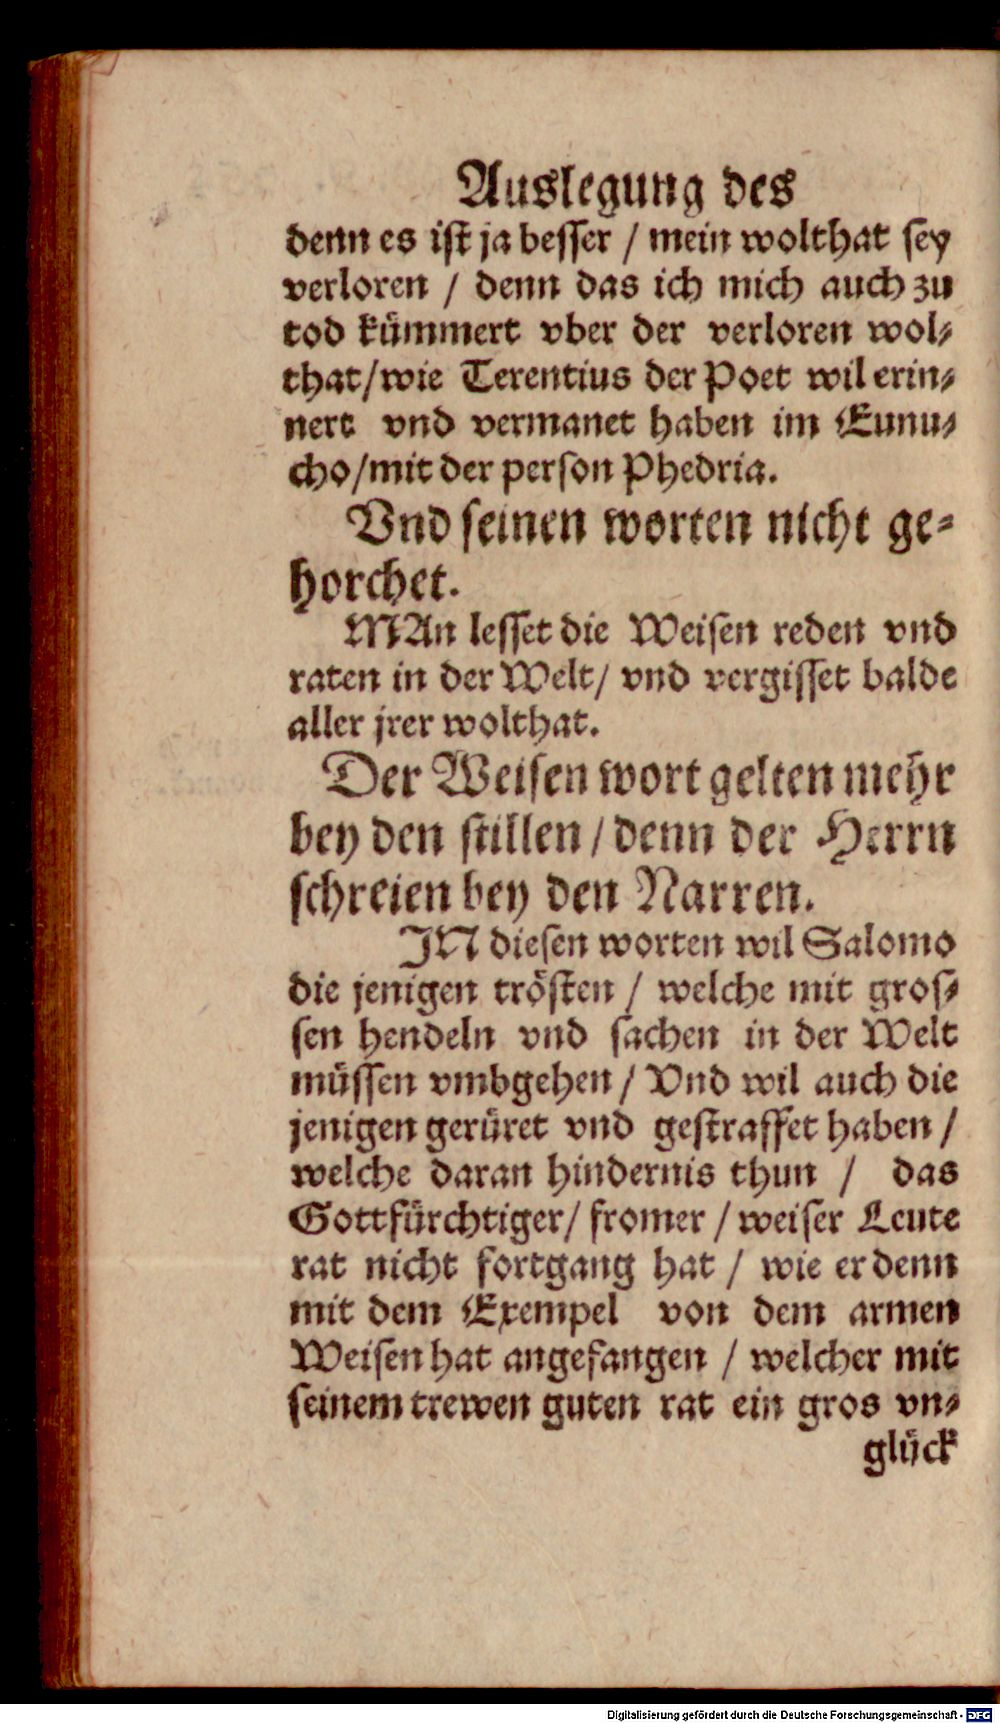 Auslegung des
denn es ist ja besser / mein wolthat sey
verloren / denn das ich mich auch zu
tod kümmert vber der verloren wol⸗
that/wie Terentius der Poet wil erin⸗
nert vnd vermanet haben im Eunu⸗
cho/mit der person Phedria.
Vnd seinen worten nicht ge⸗
horchet.
MAn lesset die Weisen reden vnd
raten in der Welt/ vnd vergisset balde
aller jrer wolthat.
Der Weisen wort gelten mehr
bey den stillen / denn der Herrn
schreien bey den Narren.
JN diesen worten wil Salomo
die jenigen trösten / welche mit gros⸗
sen hendeln vnd sachen in der Welt
müssen vmbgehen / Vnd wil auch die
jenigen gerüret vnd gestraffet haben /
welche daran hindernis thun / das
Gottfürchtiger/ fromer / weiser Leute
rat nicht fortgang hat / wie er denn
mit dem Exempel von dem armen
Weisen hat angefangen / welcher mit
seinem trewen guten rat ein gros vn⸗
glück
Digitalisierung gefördert durch die Deutsche Forschungsgemeinschaft - DFG